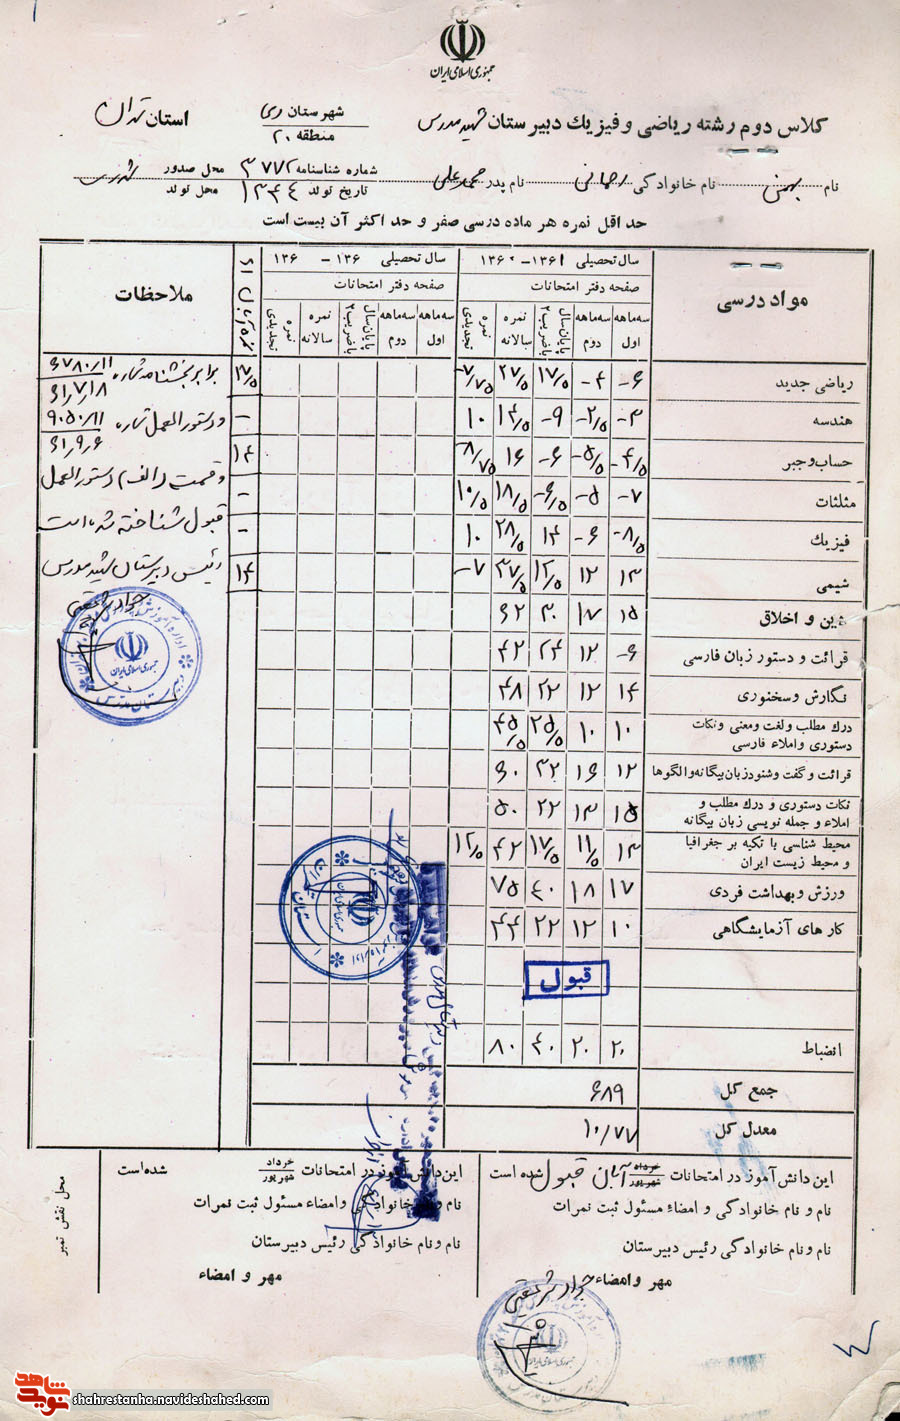 جمهوری اسلامی ایران
کلاس دوم رشته ریاضی و فیزیک دبیرستان شهید مدرس شهرستان ری منطقه ۲۰ استان تهران
نام بهمن نام خانوادگی رحمانی نام پدر محمدعلی شماره شناسنامه ۳۷۷۲ محل صدور شهرری
تاریخ تولد ۱۳۴۴ محل تولد
حداقل نمره هر ماده درسی صفر و حداکثر آن بیست است
مواد درسی سال تحصیلی ۱۳۶۱ - ۱۳۶۰ سال تحصیلی ۱۳۶ - ۱۳۶ ملاحظات
صفحه دفتر امتحانات صفحه دفتر امتحانات
سه ماهه اول سه ماهه دوم پایان سال باضریب ۲ نمره سالانه نمره تجدیدی سه ماهه اول سه ماهه دوم پایان سال باضریب ۲ نمره سالانه نمره تجدیدی
ریاضی جدید ۶- ۴- ۱۷/۵ ۲۷/۵ ۷/۷۵-
هندسه ۳- ۲/۵- ۹- ۱۴/۵ ۱۰ -
حساب و جبر ۴/۵- ۵/۵- ۶- ۱۶ ۸/۷۵- ۱۴
مثلثات ۷- ۵- ۶/۵- ۱۸/۵ ۱۰/۵ -
فیزیک ۸/۵- ۶- ۱۴ ۲۸/۵ ۱۰ -
شیمی ۱۳ ۱۲ ۱۲/۵ ۳۷/۵ ۷- ۱۴
دین و اخلاق ۱۵ ۱۷ ۳۰ ۶۲
قرائت و دستور زبان فارسی ۶- ۱۲ ۲۴ ۴۲
نگارش و سخنوری ۱۴ ۱۲ ۲۲ ۴۸
درک مطلب و لغت و معنی و نکات دستوری و املاء فارسی ۱۰ ۱۰ ۲۵/۵ ۴۵/۵
قرائت و گفت و شنود زبان بیگانه و الگوها ۱۲ ۱۶ ۳۲ ۶۰
نکات دستوری و درک مطلب و املاء و جمله نویسی زبان بیگانه ۱۵ ۱۳ ۲۲ ۵۰
محیط شناسی با تکیه بر جغرافیا و محیط زیست ایران ۱۳ ۱۱/۵ ۱۷/۵ ۴۲ ۱۲/۵
ورزش و بهداشت فردی ۱۷ ۱۸ ۴۰ ۷۵
کارهای آزمایشگاهی ۱۰ ۱۲ ۲۲ ۴۴
قبول
انضباط ۲۰ ۲۰ ۴۰ ۸۰
جمع کل ۶۸۹
معدل کل ۱۰/۷۷
برابر بخشنامه شماره ۶۷۸۰/۱۱
۶۱/۷/۱۸
و دستورالعمل شماره ۹۰۵۰/۱۱
۶۱/۹/۶
و قسمت (الف) دستورالعمل
قبول شناخته شده است
رئیس دبیرستان شهید مدرس
این دانش آموز در امتحانات خرداد شهریور آبان قبول شده است
نام و نام خانوادگی و امضاء مسئول ثبت نمرات
نام و نام خانوادگی رئیس دبیرستان
مهر و امضاء
این دانش آموز در امتحانات خرداد شهریور شده است
نام و نام خانوادگی و امضاء مسئول ثبت نمرات
نام و نام خانوادگی رئیس دبیرستان
مهر و امضاء
محل نقش تمبر
نوید شاهد
shahrestanha.navideshahed.com